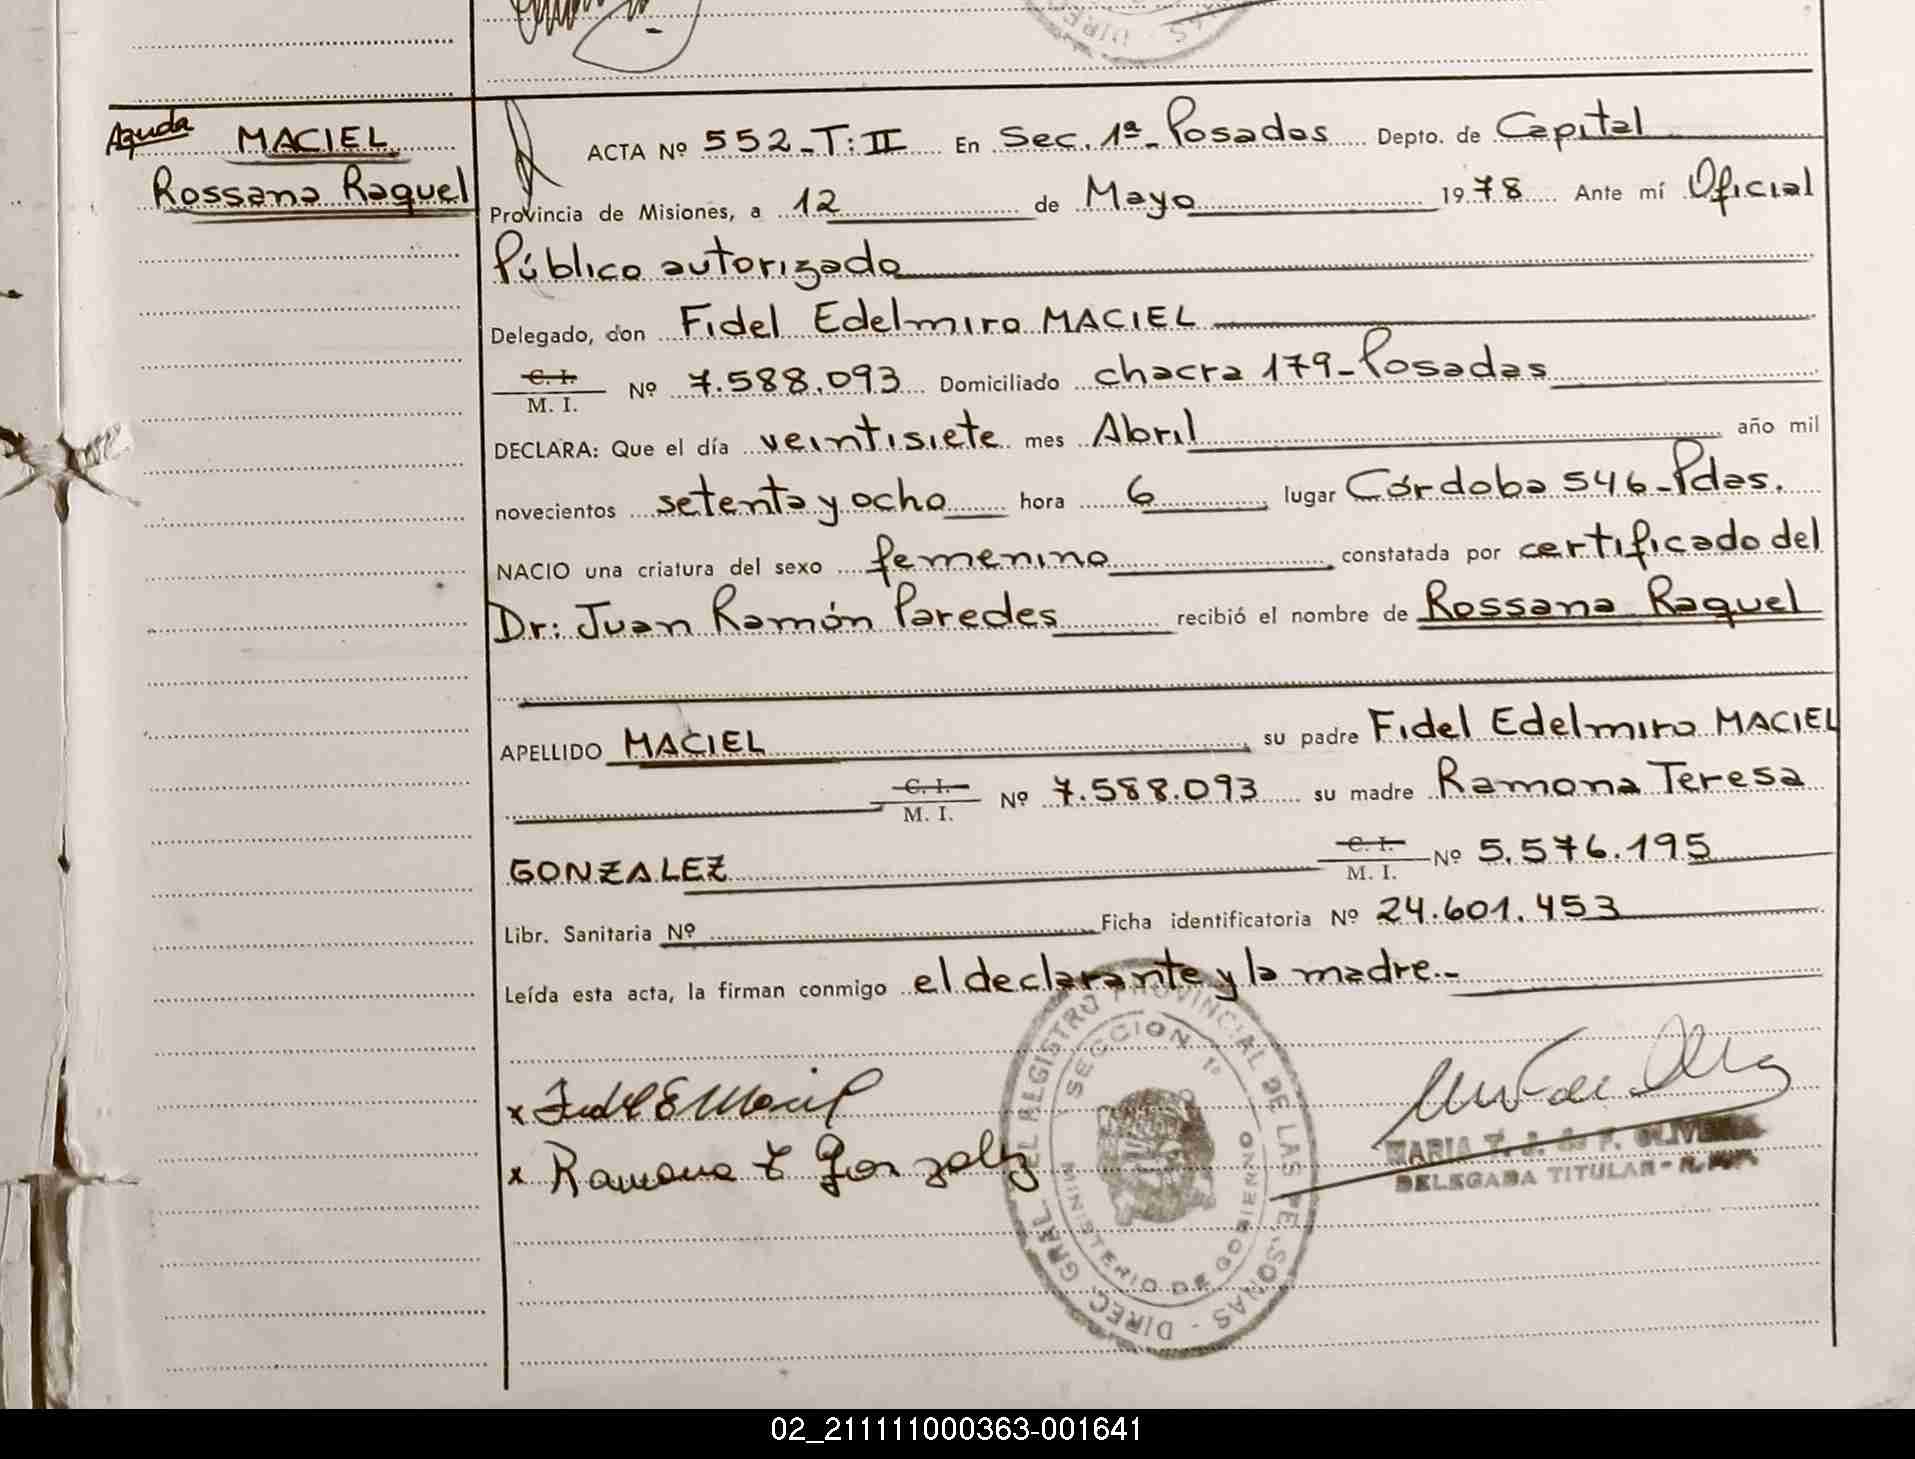 Ayuda
MACIEL
Rossana Raquel
ACTA Nº 552-T:II En Sec. 1ª- Posadas Depto. de Capital
Provincia de Misiones, a 12 de Mayo 1978 Ante mí Oficial
Público autorizado
Delegado, don Fidel Edelmiro MACIEL
C. I.
M. I. Nº 7.588.093 Domiciliado chacra 179-Posadas
DECLARA: Que el día veintisiete mes Abril año mil
novecientos setenta y ocho hora 6 lugar Córdoba 546-Pdas.
NACIO una criatura del sexo femenino constatada por certificado del
Dr: Juan Ramón Paredes recibió el nombre de Rossana Raquel
APELLIDO MACIEL su padre Fidel Edelmiro MACIEL
C. I.
M. I. Nº 7.588.093 su madre Ramona Teresa
GONZALEZ C. I.
M. I. Nº 5.576.195
Libr. Sanitaria Nº Ficha identificatoria Nº 24.601.453
Leída esta acta, la firman conmigo el declarante y la madre.-
x Fidel E Maciel
x Ramona T Gonzalez
DIREC. GRAL. DEL REGISTRO PROVINCIAL DE LAS PERSONAS
SECCION 1º
MINISTERIO DE GOBIERNO
MARIA T. J. de F. OLIVERA
DELEGADA TITULAR
02_211111000363-001641